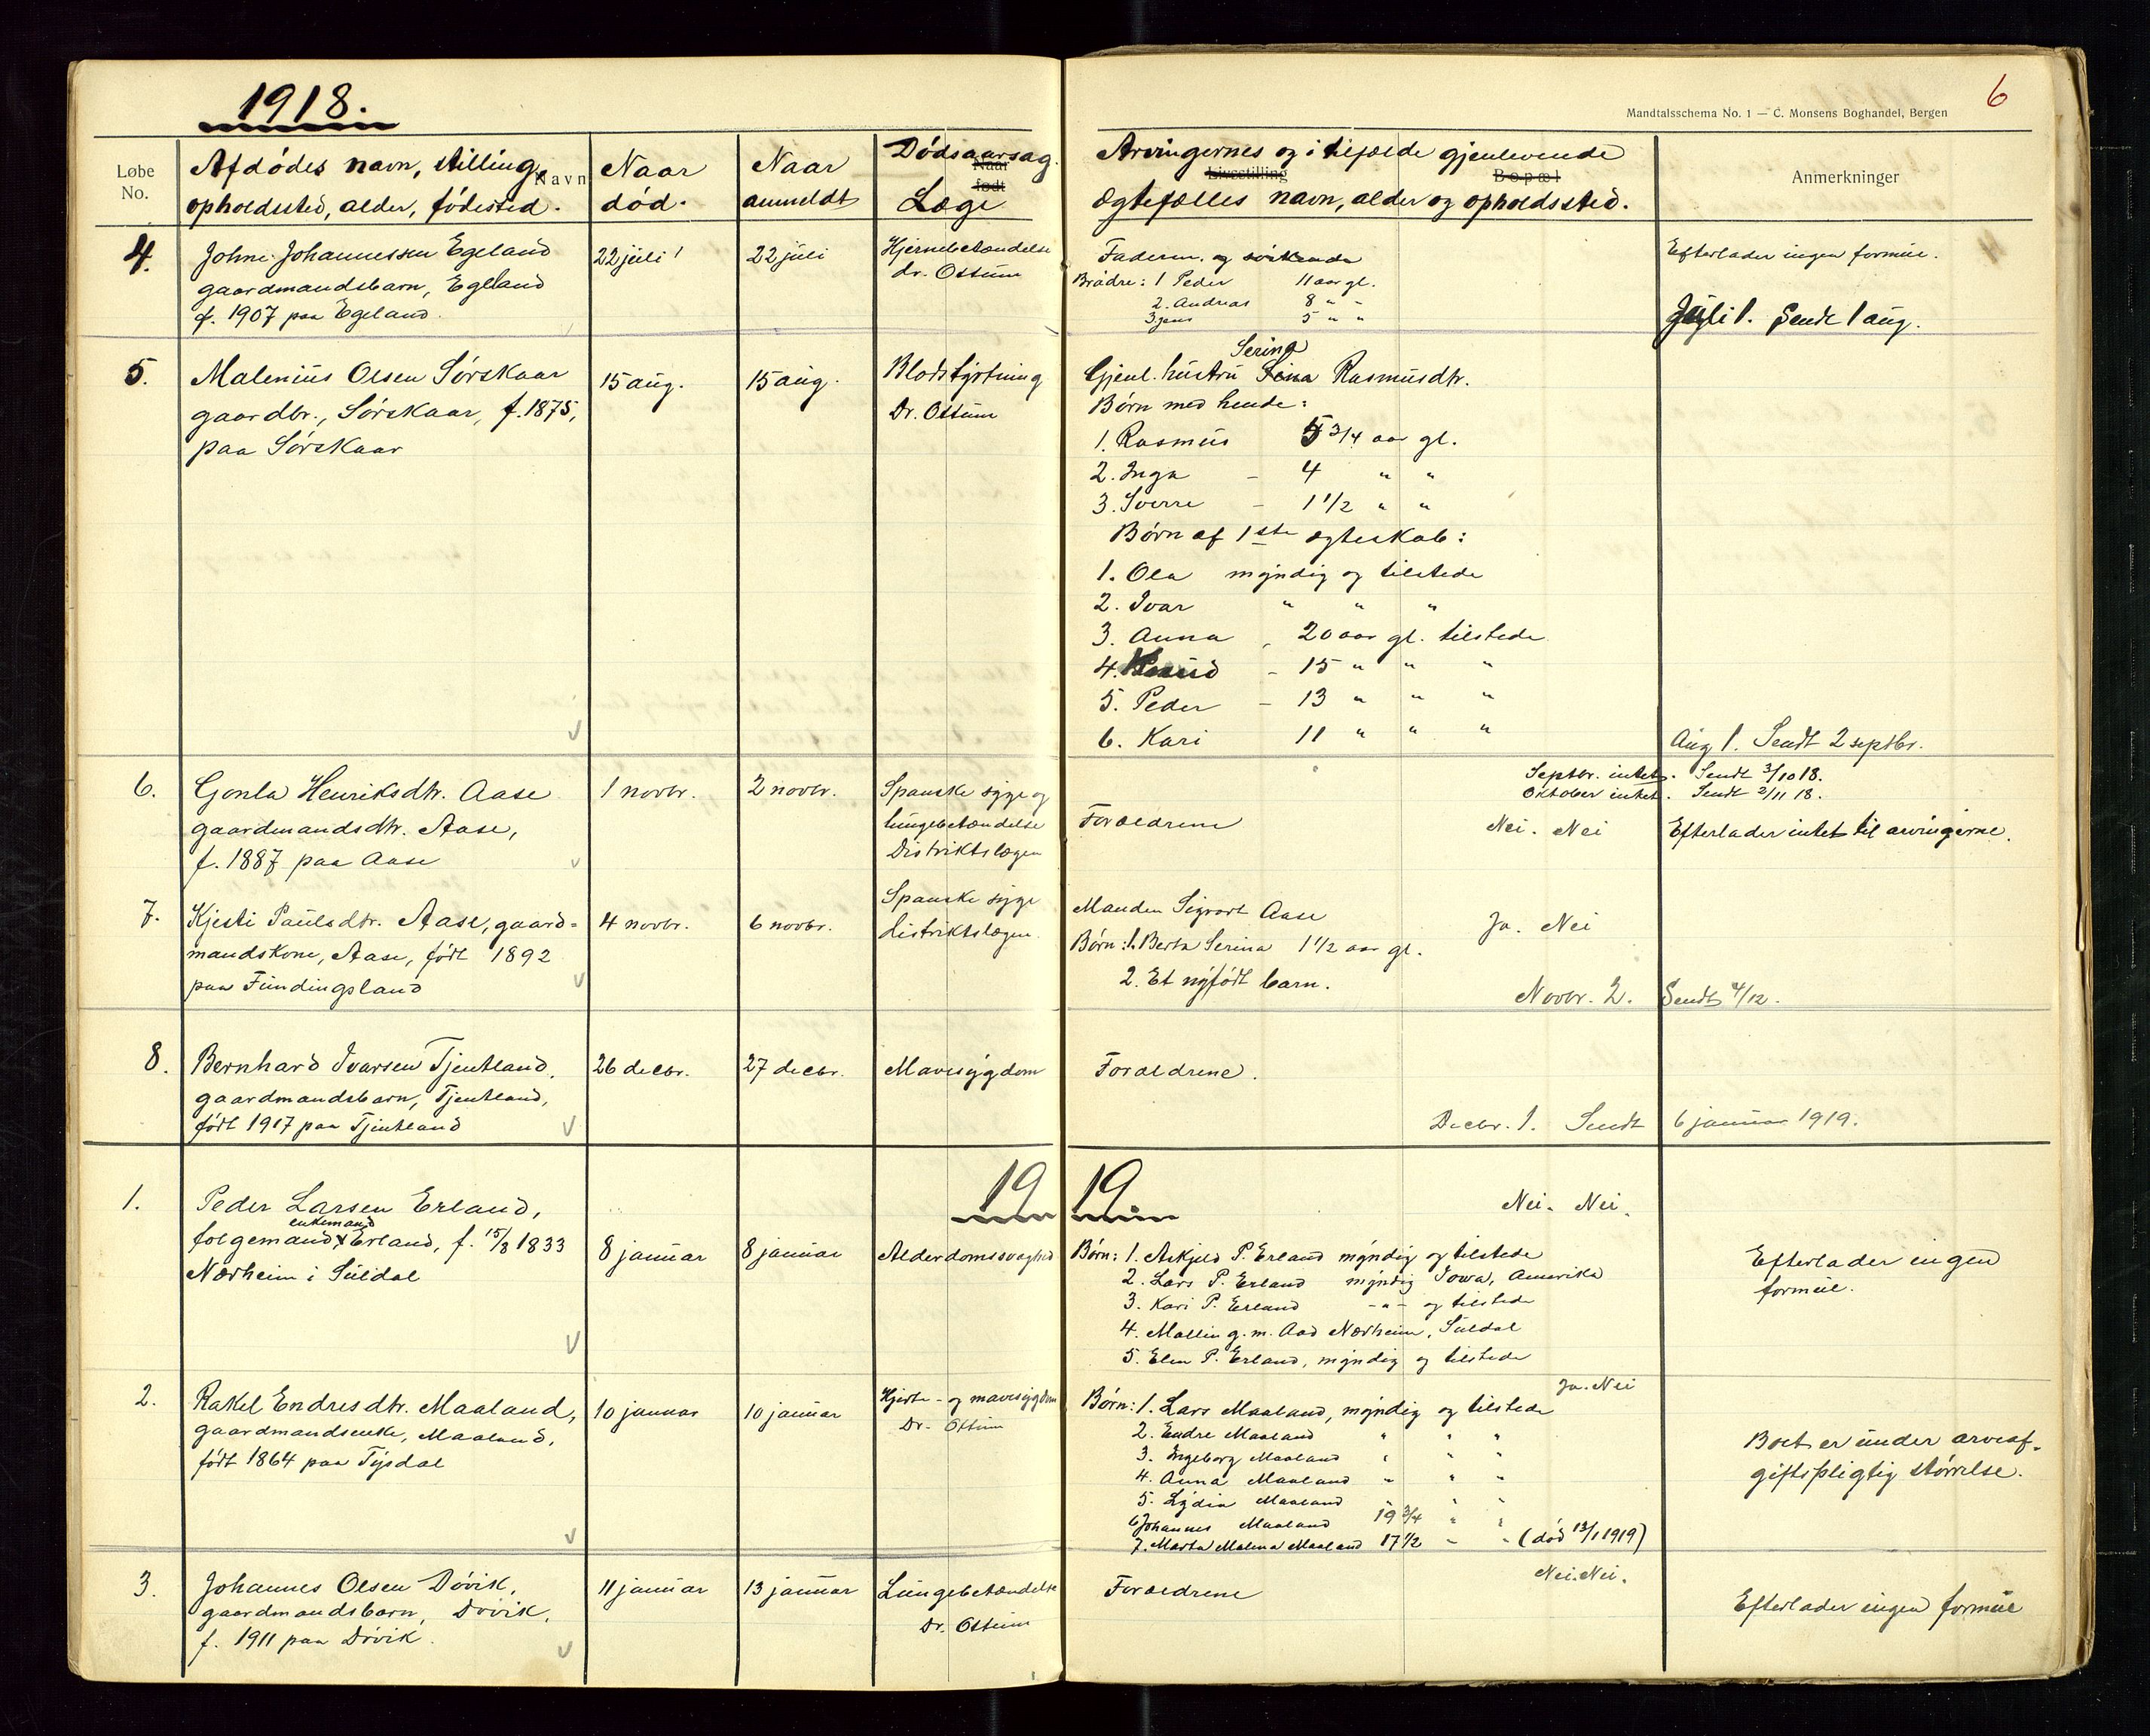 1918.
6
Mandtalsschema No. 1 — C. Monsens Boghandel, Bergen
Løbe No.
Afdødes navn, stilling, Navn
opholdssted, alder, fødested.
Naar død.
Naar anmeldt
Dødsaarsag.
Naar født
Læge
Arvingernes og i tilfælde gjenlevende
Livsstilling
Bopæl
Ægtefælles navn, alder og opholdssted.
Anmerkninger
4. Johne Johannessen Egeland
gaardmandsbarn, Egeland
f. 1907 paa Egeland.
22 juli
22 juli
Hjernebetændelse
dr. Ostum
Faderen og søskende
Brødre: 1 Peder 11 aar gl.
2. Andreas 8 " "
3 Jens 5 " "
Efterlader ingen formue.
Juli 1. Sendt 1 aug.
5. Malenius Olsen Sørskaar
gaardbr., Sørskaar, f. 1875,
paa Sørskaar
15 aug.
15 aug.
Blodstyrtning
Dr. Ostum
Serina
Gjenl. hustru Rasmusdtr.
Børn med hende:
1. Rasmus 5 3/4 aar gl.
2. Inga - 4 " "
3. Sverre - 1 1/2 " "
Børn af 1ste egteskab:
1. Ola myndig og tilstede
2. Ivar " " "
3. Anna , 20 aar gl. tilstede
4. Knud - 15 " " "
5. Peder - 13 " " "
6. Kari 11 " " "
Aug 1. Sendt 2 septbr.
Septbr. intet. Sendt 3/10 18.
Oktober intet. Sendt 2/11 18.
6. Gonla Henriksdtr. Aase
gaardmandsdtr. Aase,
f. 1887 paa Aase
1 novbr.
2 novbr.
Spanske syge og
lungebetændelse
Distriktslægen
Forældrene
Nei. Nei
Efterlader intet til arvingerne.
7. Kjesti Paulsdtr. Aase, gaard-
mandskone, Aase, født 1892
paa Fundingsland
4 novbr.
6 novbr.
Spanske syge
distriktslægen.
Manden Sigvart Aase
Børn: 1. Berta Serina 1 1/2 aar gl.
2. Et nyfødt barn.
Ja. Nei
Novbr. 2. Sendt 4/12.
8. Bernhard Ivarsen Tjentland,
gaardmandsbarn, Tjentland,
født 1917 paa Tjentland
26 decbr.
27 decbr.
Mavesygdom
Forældrene.
Decbr. 1. Sendt 6 januar 1919.
1919
1. Peder Larsen Erland,
enkemand
folgemand, Erland, f. 15/8 1833
Nærheim i Suldal
8 januar
8 januar
Alderdomssvaghed
Nei. Nei.
Børn: 1. Askjeld P. Erland myndig og tilstede
2. Lars P. Erland myndig Iowa, Amerika
3. Kari P. Erland -"- og tilstede
4. Malling. m. Aad Nærheim, Suldal
5. Elen P. Erland, myndig og tilstede
Efterlader ingen
formue.
2. Rakel Endresdtr. Maaland,
gaardmandsenke, Maaland,
født 1864 paa Tysdal
10 januar
10 januar
Hjerte- og mavesygdom
Dr. Ostum
Ja. Nei
Børn: 1. Lars Maaland, myndig og tilstede
2. Endre Maaland " " "
3. Ingeborg Maaland " " "
4. Anna Maaland " " "
5. Lydia Maaland " "
6 Johannes Maaland 19 3/4 " "
7. Marta Malena Maaland 17 1/2 " " (død 13/1 1919)
Boet er under arveaf-
giftspligtig størrelse.
3. Johannes Olsen Døvik,
gaardmandsbarn, Døvik,
f. 1911 paa Døvik.
11 januar
13 januar
Lungebetændelse
Dr. Ostum
Forældrene
Nei. Nei.
Efterlader ingen formue